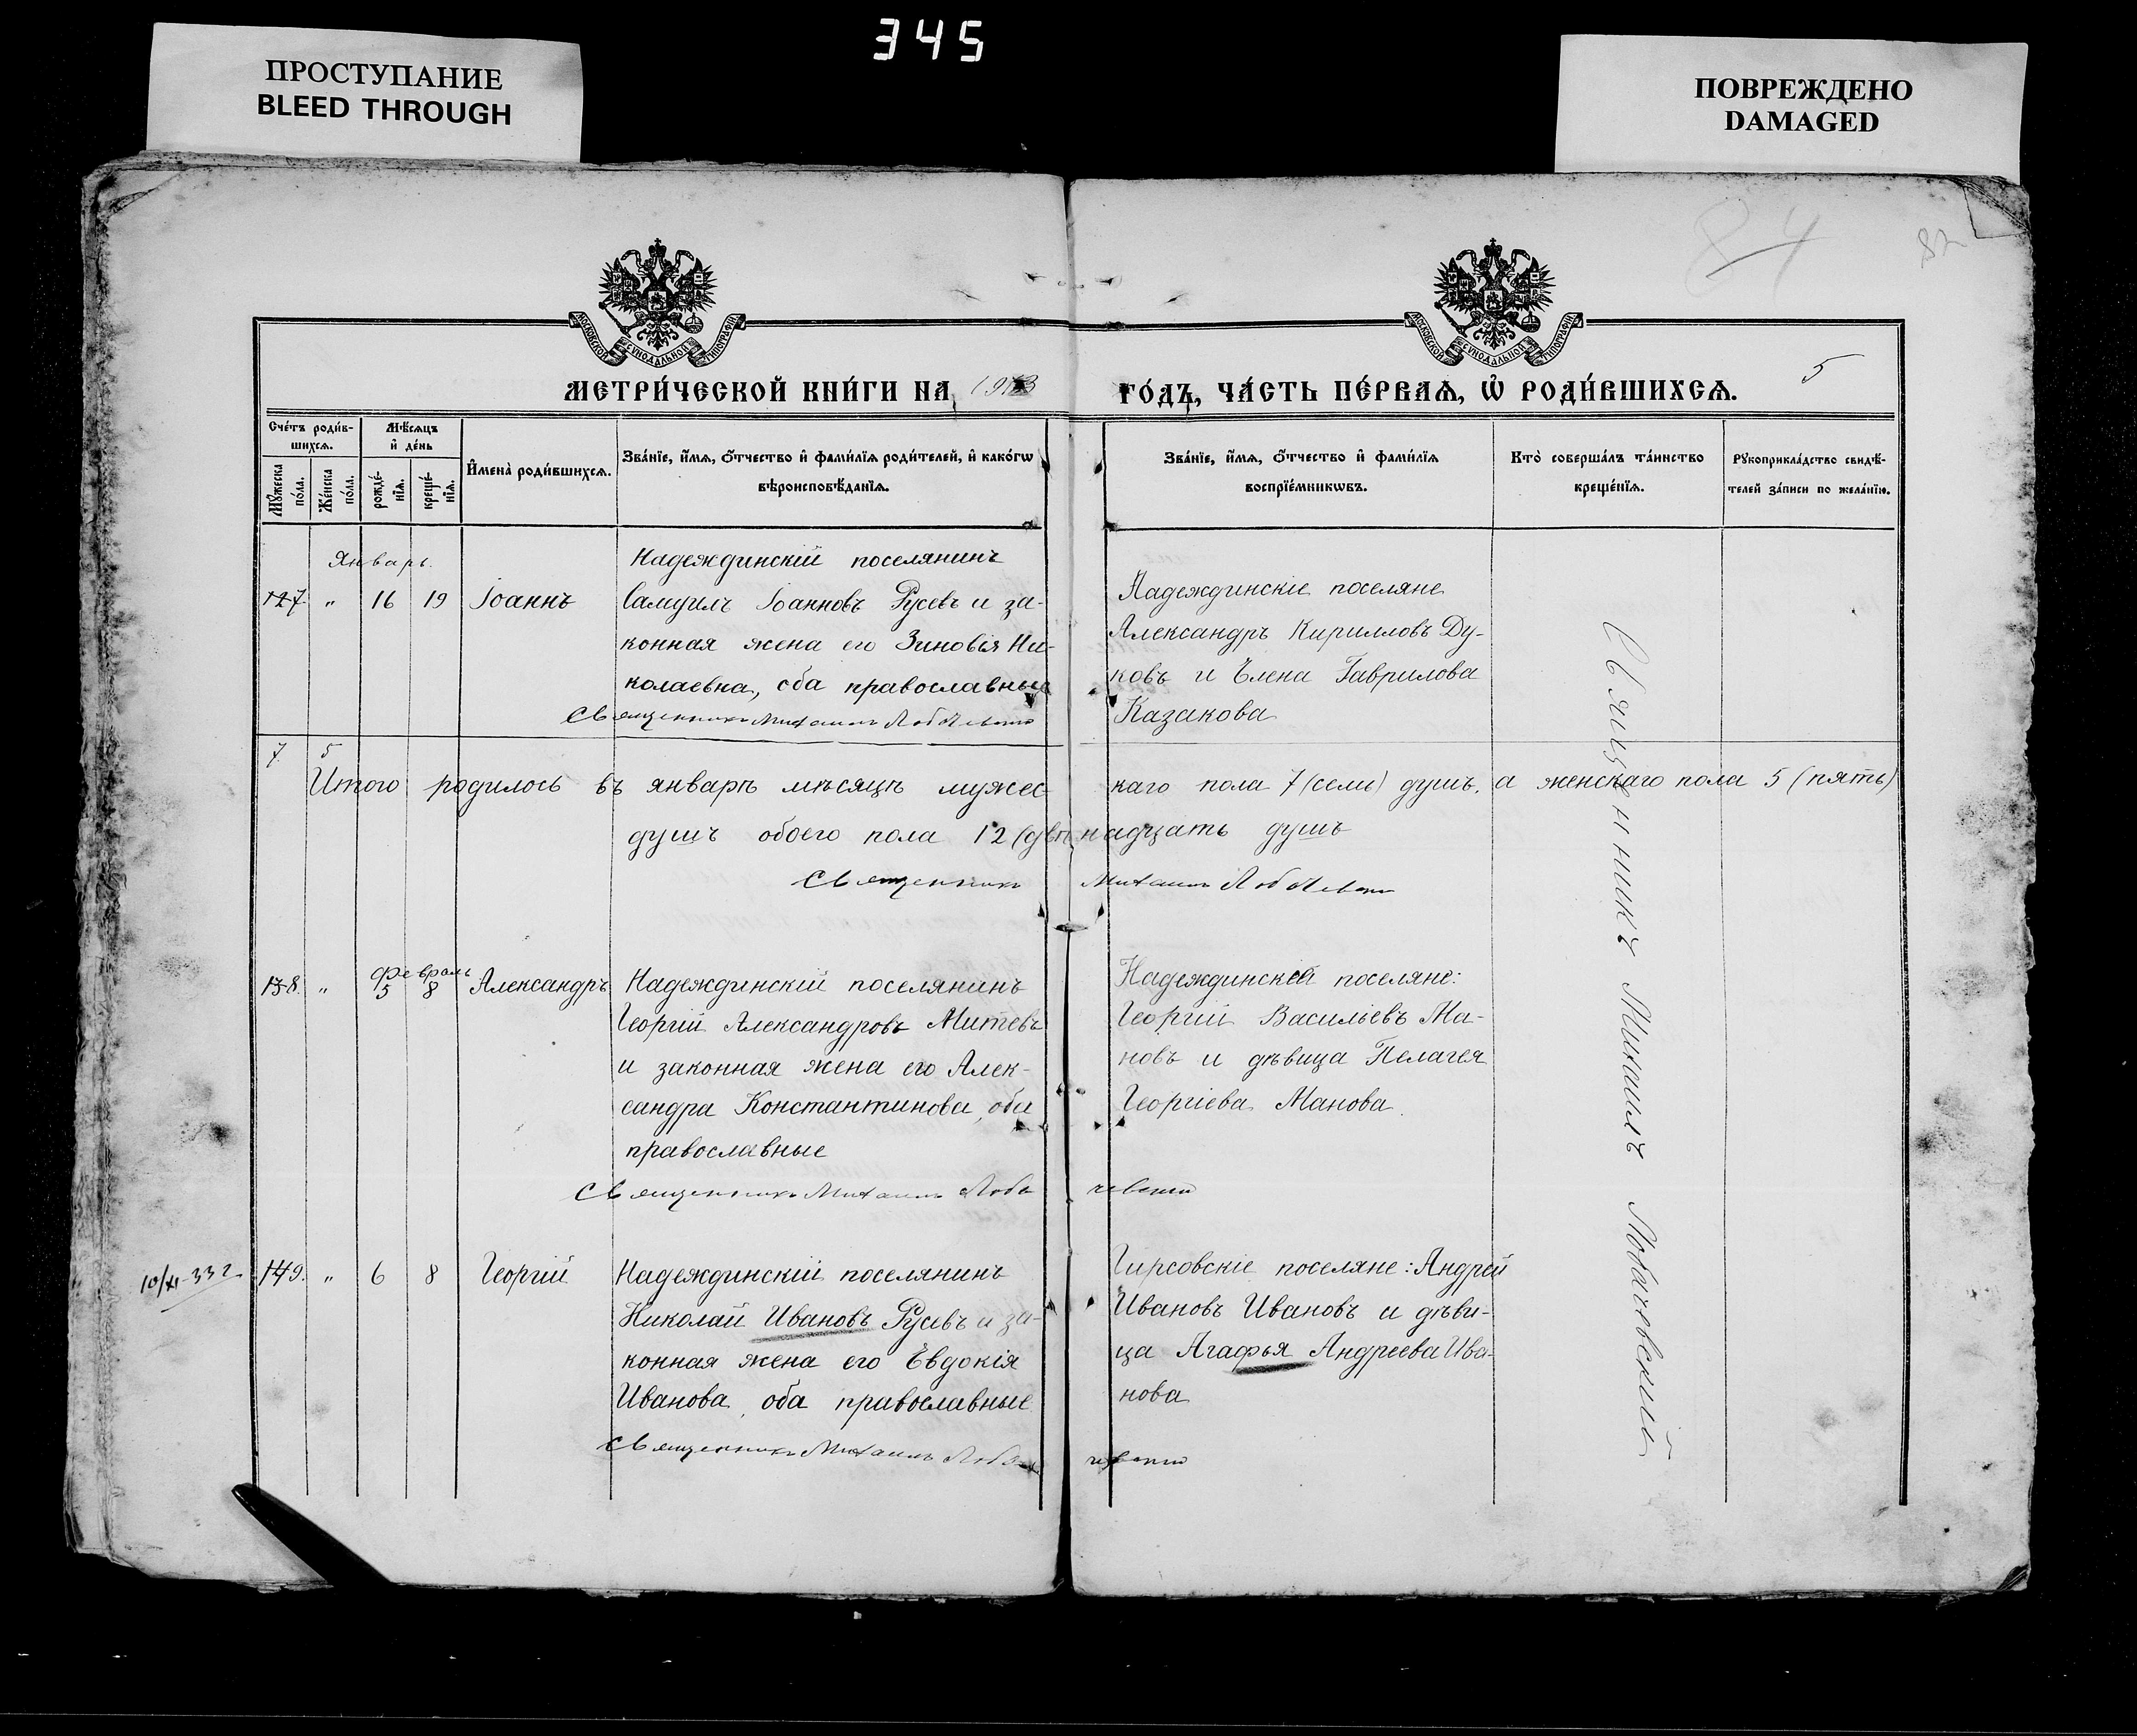 345
ПРОСТУПАНИЕ
BLEED THROUGH
ПОВРЕЖДЕНО
DAMAGED
84
82
МОСКОВСКОЙ СѴНОДАЛЬНОЙ ТИПОГРАФІИ
МОСКОВСКОЙ СѴНОДАЛЬНОЙ ТИПОГРАФІИ
МЕТРИ́ЧЕСКОЙ КНИ́ГИ НА 1913
ГО́ДЪ, ЧА́СТЬ ПЕ́РВАѦ, Ѽ РОДИ́ВШИХСѦ.
5
Сче́тъ роди́в-
шихсѧ.
Мꙋ́жеска
по́ла.
Же́нска
по́ла.
Мѣ́сѧцъ
и҆ де́нь
рожде́-
нїѧ.
креще́-
нїѧ.
И҆мена̀ роди́вшихсѧ.
Зва́нїе, и҆́мѧ, ѻ҆́тчество и҆ фами́лїѧ роди́телей, и҆ како́гѡ
вѣроисповѣ́данїѧ.
Зва́нїе, и҆́мѧ, ѻ҆́тчество и҆ фами́лїѧ
воспрїе́мникѡвъ.
Кто̀ соверша́лъ та́инство
креще́нїѧ.
Рꙋкоприкла́дство свидѣ́-
телей за́писи по жела́нїю.
Январь.
127. " 16 19 Іоаннъ
Надеждинскій поселянинъ
Самуилъ Іоанновъ Русевъ и за-
конная жена его Зиновія Ни-
колаевна, оба православные
Священникъ Михаилъ
Надеждинскіе поселяне
Александръ Кирилловъ Ду-
ковъ и Елена Гаврилова
Казакова
7 5
Итого родилось въ январѣ мѣсяцѣ мужес каго пола 7 (семь) душъ, а женскаго пола 5 (пять)
душъ обоего пола 12 (двѣнадцать душъ
Священникъ Михаилъ
Февраль
138. " 5 8 Александръ
Надеждинскій поселянинъ
Георгій Александровъ Митевъ
и законная жена его Алек-
сандра Константинова, оба
православные
Священникъ Михаилъ
Надеждинскіе поселяне:
Георгій Васильевъ Ма-
новъ и дѣвица Пелагея
Георгіева Манова.
10/XI-332
149. " 6 8 Георгій
Надеждинскій поселянинъ
Николай Ивановъ Русевъ и за-
конная жена его Евдокія
Иванова, оба православные
Священникъ Михаилъ
Гирсовскіе поселяне: Андрей
Ивановъ Ивановъ и дѣви-
ца Агафья Андреева Ива-
нова
Священникъ Михаилъ